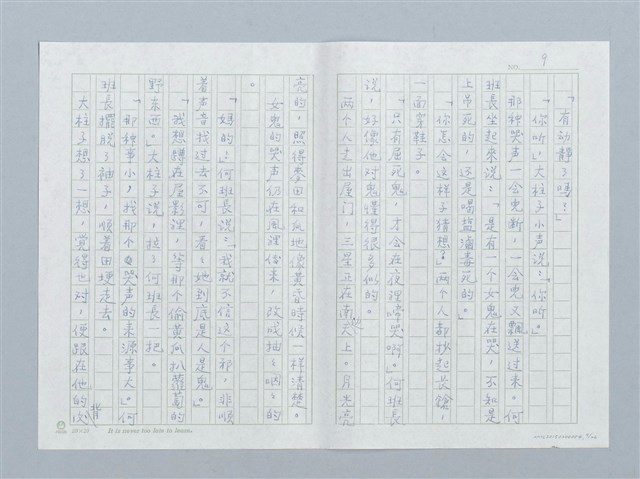 NO. 9
「有动静了吗?」
「你听,」大柱子小声说:「你听。」
那种哭声一会儿断,一会儿又飘送过来。何
班長坐起來说:「是有一个女鬼在哭,不知是
上吊死的,还是喝盐滷毒死的。」
「你怎会这样子猜想?」两个人都抄起長鎗,
一面穿鞋子。
「只有屈死鬼,才会在夜裡啼哭啊。」何班長
说,好像他对鬼懂得很多似的。
两个人走出屋门,三星正在南天上。月光亮
亮的,照得麥田和瓜地像黃昏時候一样清楚。
女鬼的哭声仍在風裡傳來,改成抽抽咽咽的
。
「媽的,」何班長说:「我就不信这个邪,非順
着声音找过去不可,看看她到底是人是鬼。」
「我想蹲在屋影裡,等那个偷黃瓜扒蘿蔔的
野东西。」大柱子说,拉了何班長一把。
「那种事小,找那个哭声的来源事大。」何
班長擺脱了袖子,順着田埂走去。
大柱子想了一想,覚得也对,便跟在他的背
20×20 It is never too late to learn.